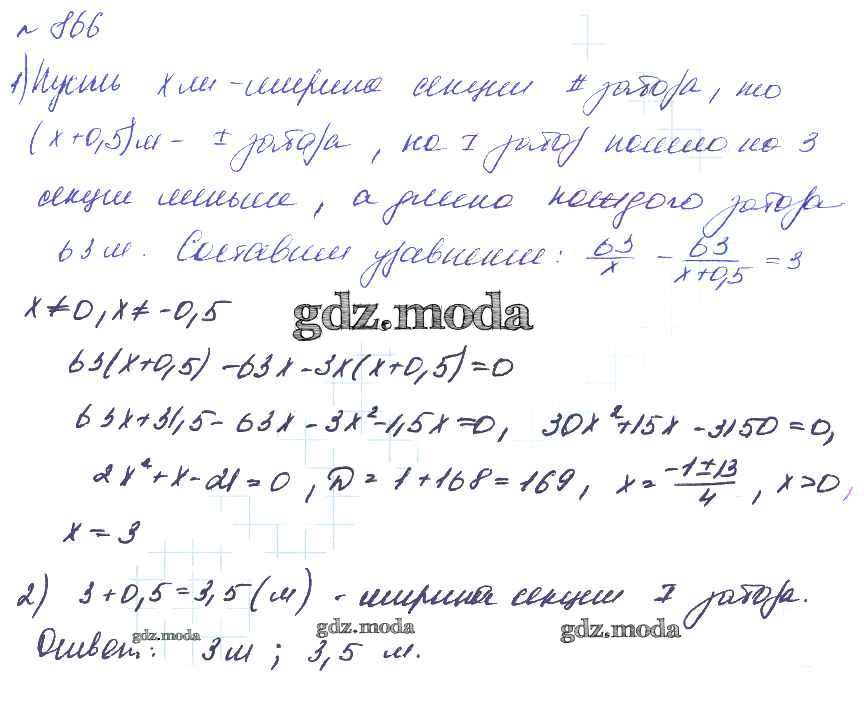 № 866
1) Пусть x м - ширина секции II забора, то
(x+0,5) м - I забора, на I забор пошло на 3
секции меньше, а длина каждого забора
63 м. Составим уравнение: 63/x - 63/(x+0,5) = 3
x≠0, x≠-0,5
gdz.moda
63(x+0,5) - 63x - 3x(x+0,5) = 0
63x+31,5 - 63x - 3x² - 1,5x = 0, 30x²+15x - 3150 = 0,
2x²+x-21 = 0, D = 1+168 = 169, x = (-1±13)/4, x>0,
x = 3
2) 3+0,5 = 3,5 (м) - ширина секции I забора.
Ответ: 3 м ; 3,5 м.
gdz.moda
gdz.moda
gdz.moda